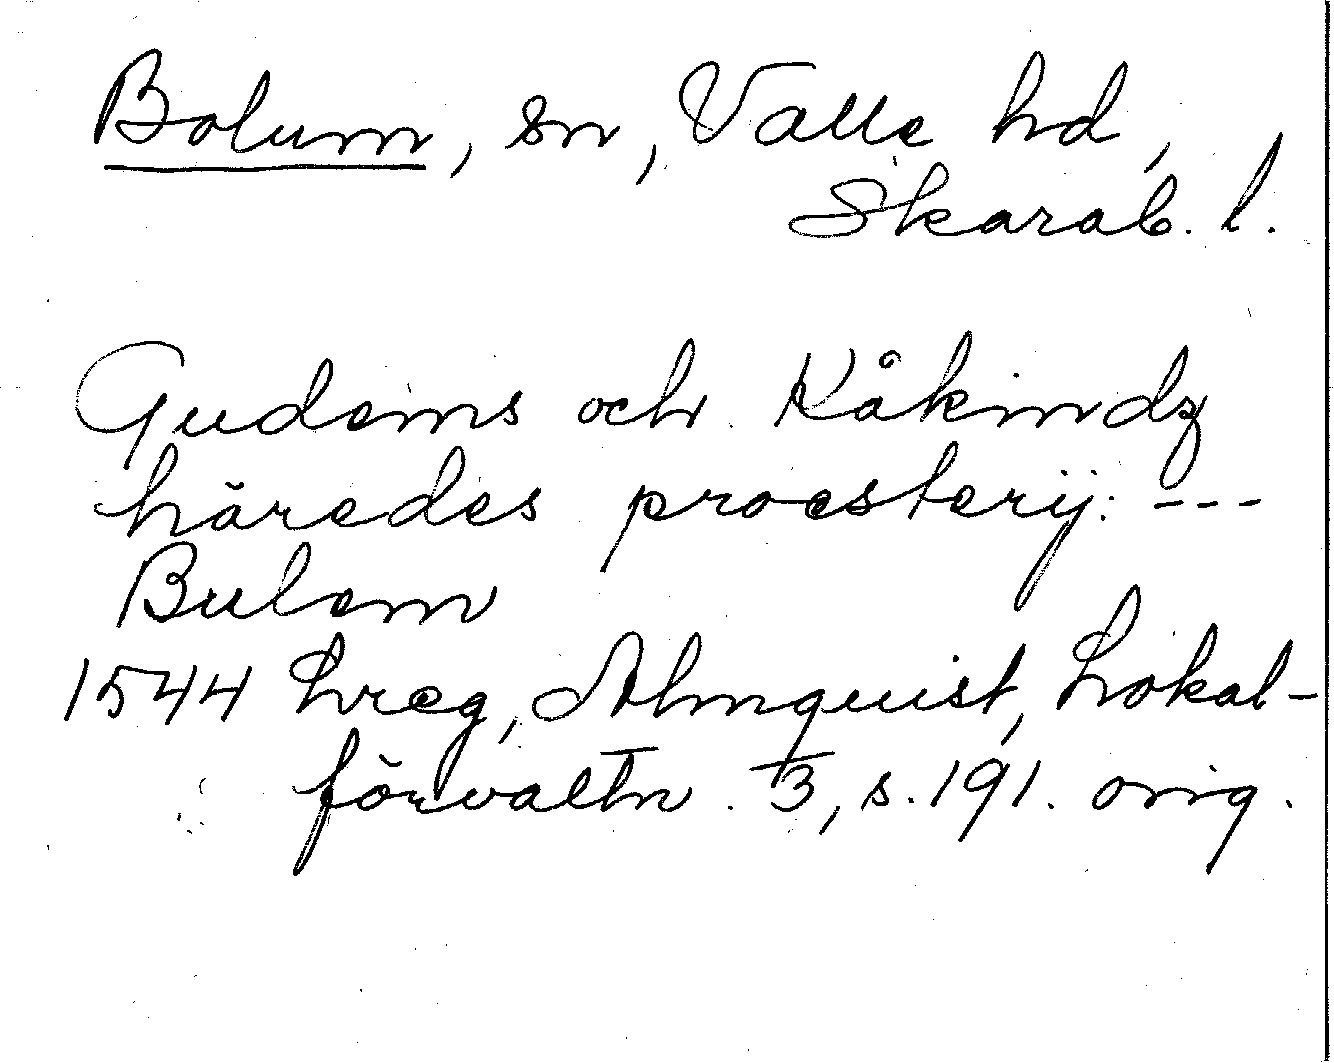 Bolum, sn, Valle hd,
Skarab. l.
Gudems och Kåkindz
häredes proesterij: ---
Bulem
1544 Lreg, Almquist, Lokal-
förvaltn. 3, s. 191. orig.